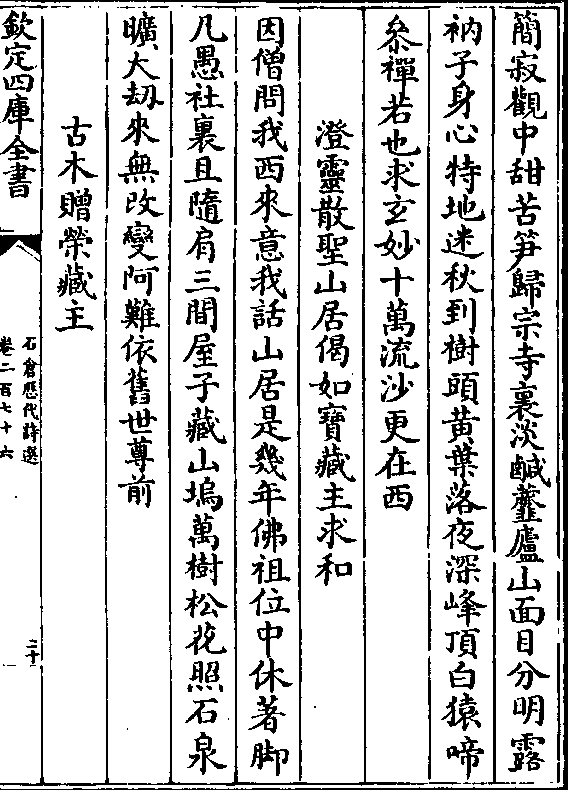 簡寂觀中甜苦筍歸宗寺裏淡鹹虀廬山面目分明露
衲子身心特地迷秋到樹頭黄葉落夜深峰頂白猿啼
叅禪若也求玄妙十萬流沙更在西
澄靈散聖山居偈如寶藏主求和
因僧問我西來意我話山居是幾年佛祖位中休著脚
凡愚社裏且隨肩三間屋子藏山塢萬樹松花照石泉
曠大刼來無改變阿難依舊世尊前
古木贈榮藏主
欽定四庫全書
石倉歷代詩選
卷二百七十六
二十